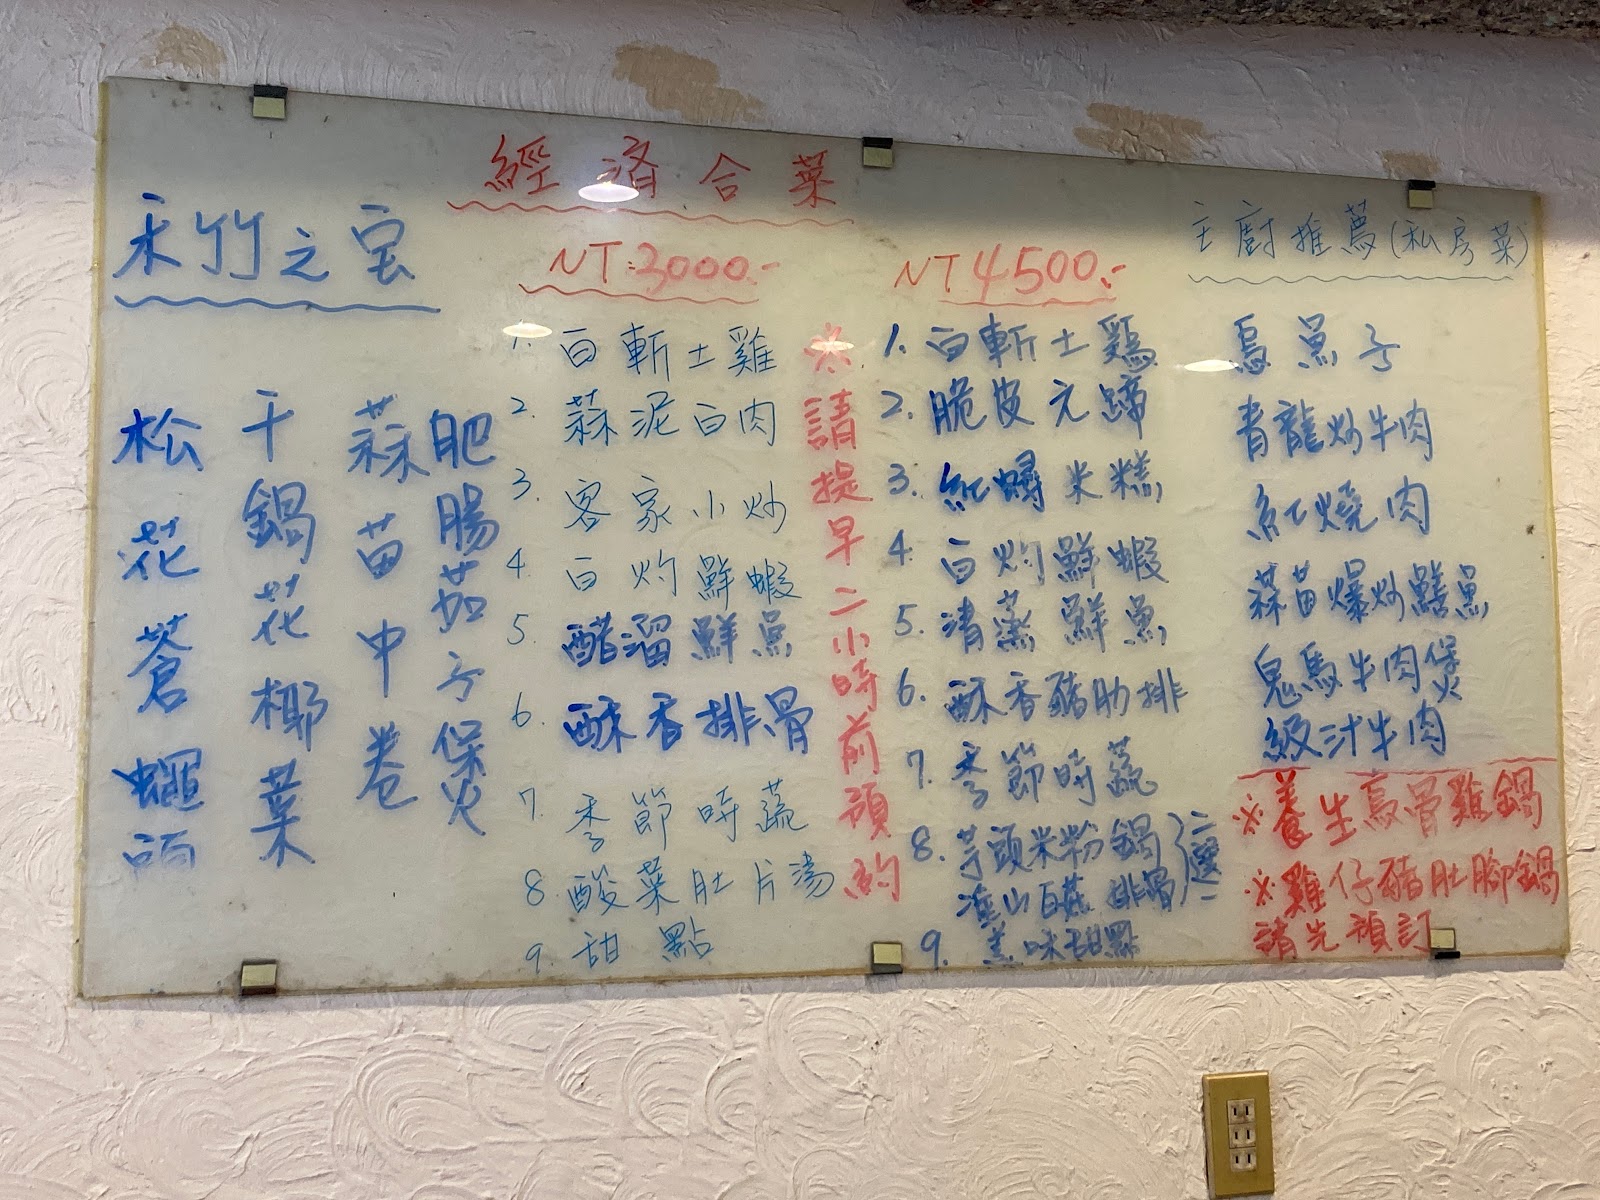 經濟合菜
禾竹之宝
肥腸茄子煲
蒜苗中卷
干鍋花椰菜
松花蒼蠅頭
NT:3000.-
1. 白斬土雞
2. 蒜泥白肉
3. 客家小炒
4. 白灼鮮蝦
5. 醋溜鮮魚
6. 酥香排骨
7. 季節時蔬
8. 酸菜肚片湯
9. 甜點
※請提早二小時前預約
NT 4500.-
1. 白斬土鷄
2. 脆皮元蹄
3. 紅蟳米糕
4. 白灼鮮蝦
5. 清蒸鮮魚
6. 酥香豬肋排
7. 季節時蔬
8. 芋頭米粉鍋
淮山 排骨
二選一
9. 美味甜點
主廚推薦(私房菜)
烏魚子
青龍炒牛肉
紅燒肉
蒜苗爆炒鱔魚
鬼馬牛肉煲
級汁牛肉
※養生烏骨雞鍋
※雞仔豬肚腳鍋
請先預訂